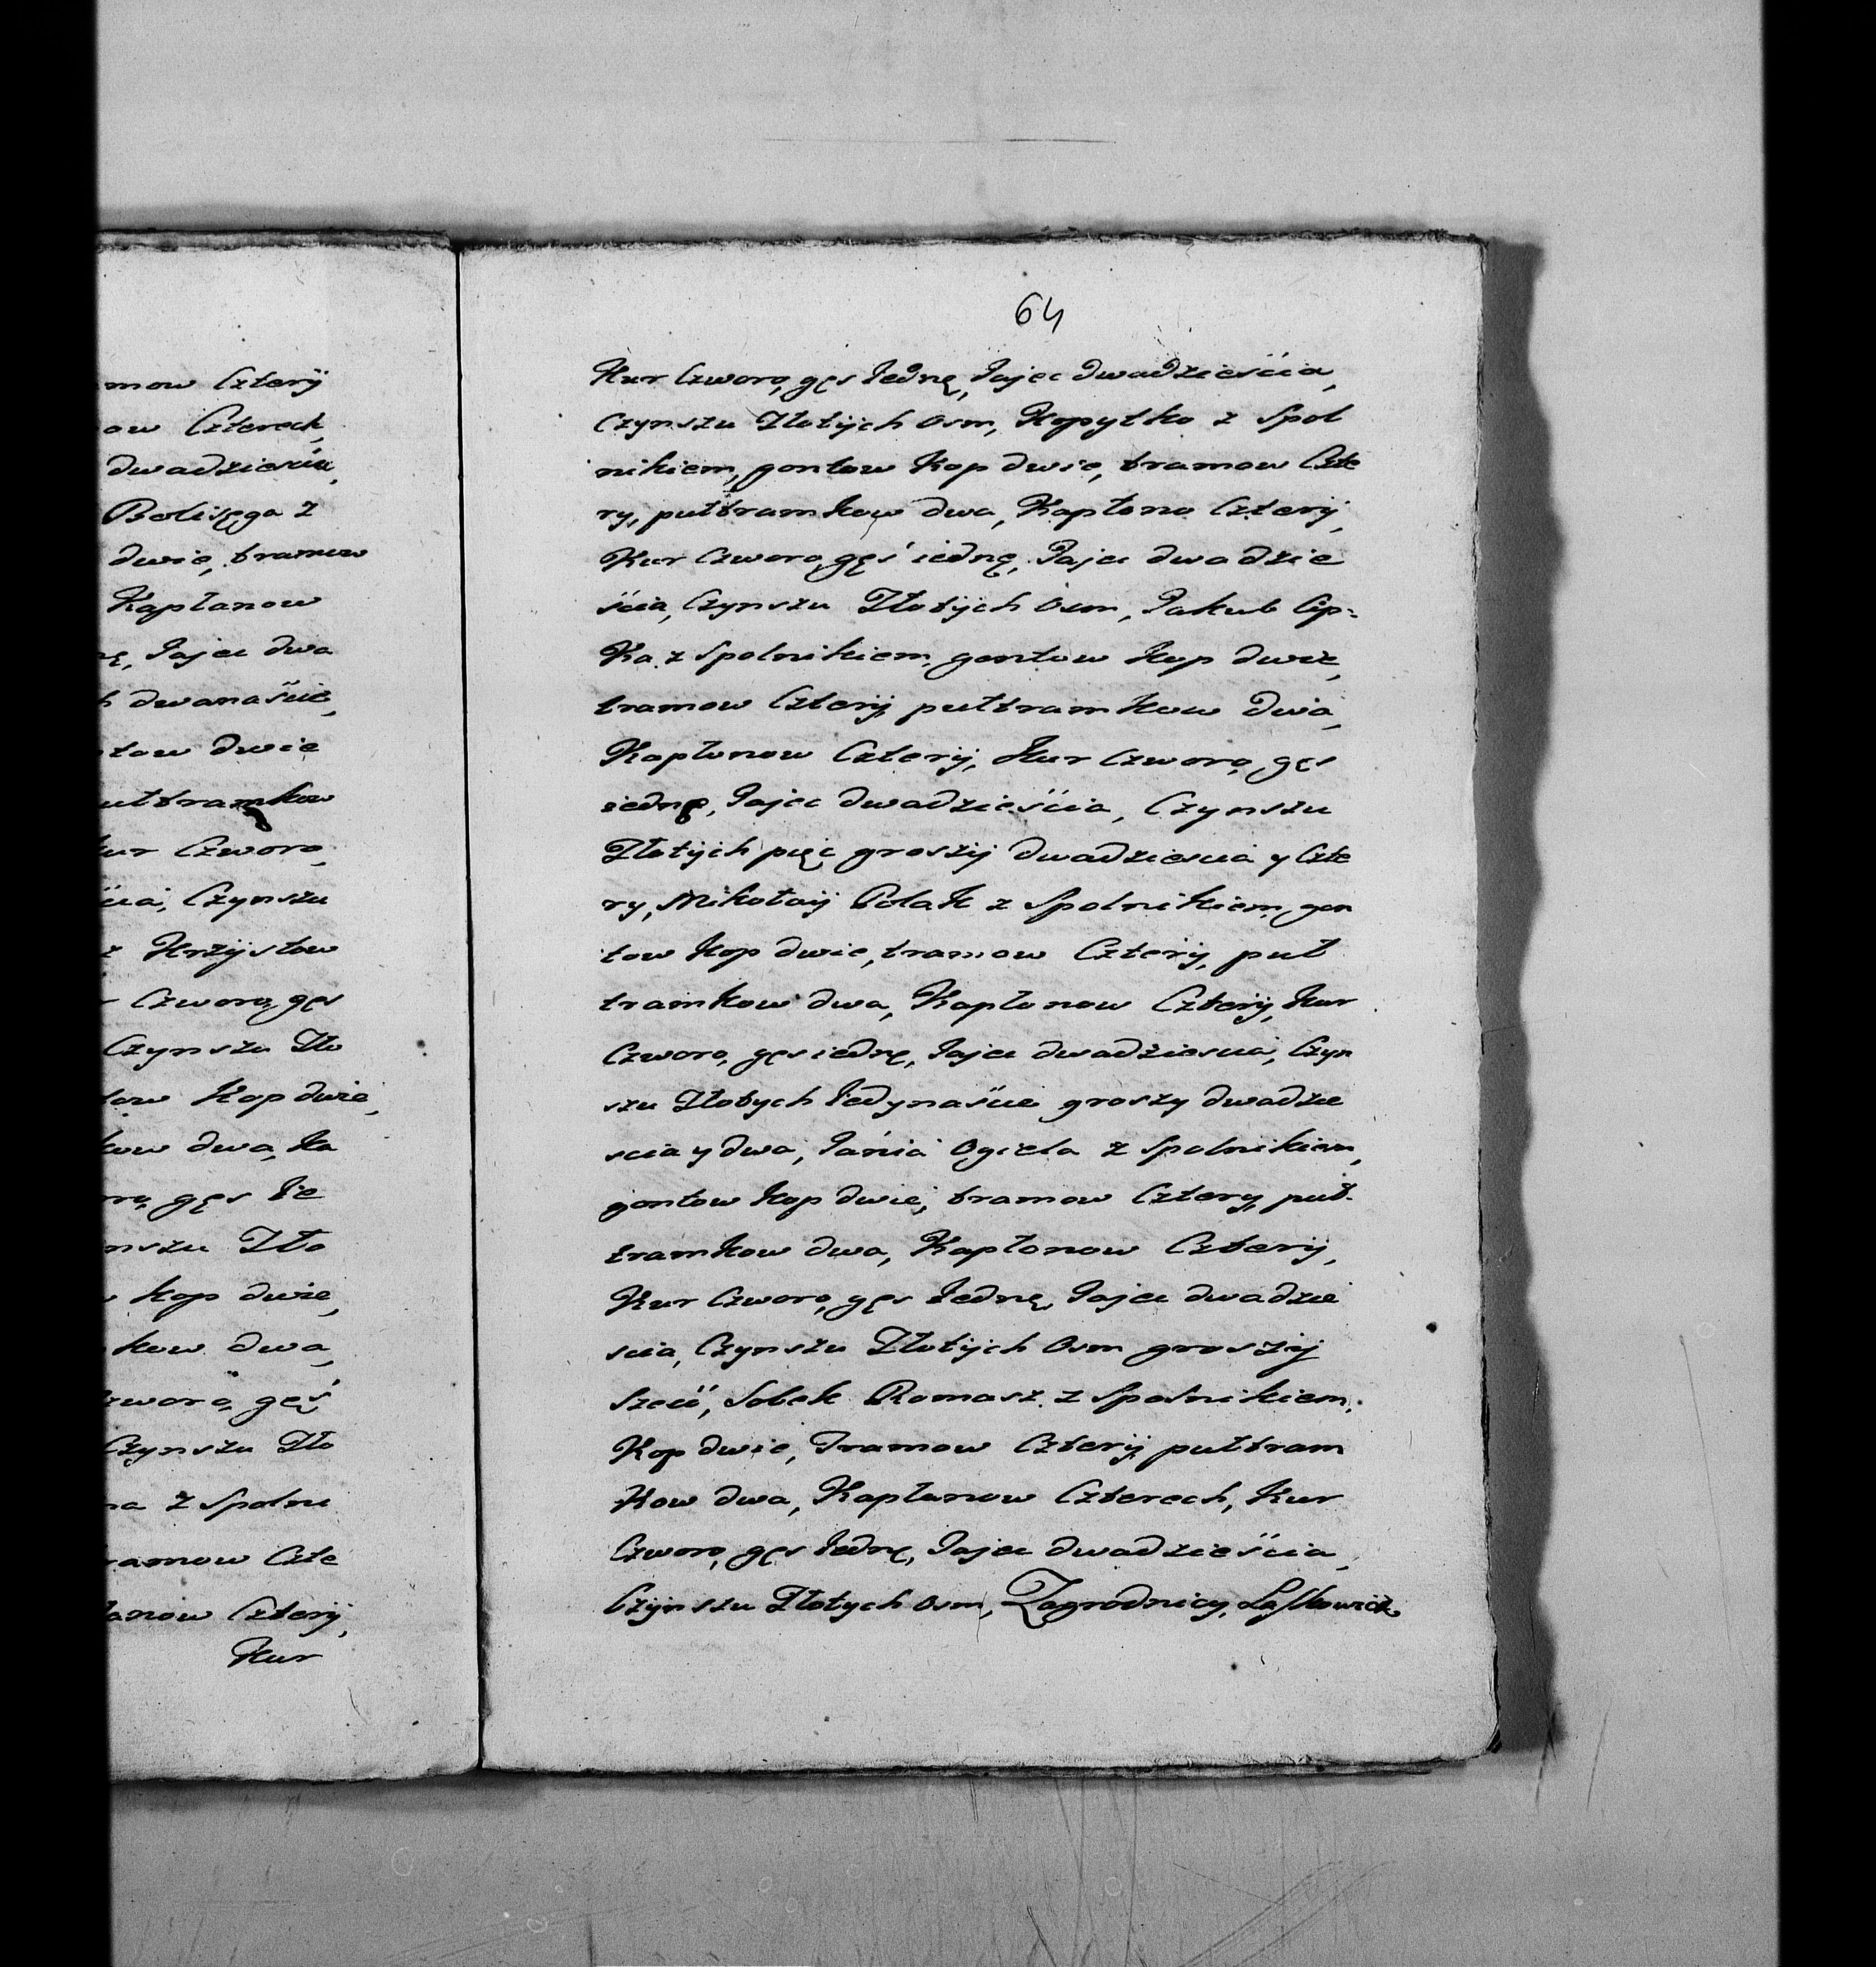 mow Czterÿ
ow Czterech,
dwadziescia,
Bolisęga z
dwie, tramow
Kapłanow
nę, Jajec dwa
h dwanaście,
tow dwie
uttramkow
kur Czworo,
ścia, Czynszu
z Krzÿstow
r Czworo, gęs
Czynszu Zło
tow Kop dwie,
kow dwa, Ka
oro, gęs Ie
nszu Zło
w kop dwie,
kow dwa,
Czworo, gęś
Czynszu Zło
na z Spolni
ramow Czte
łanow Czterÿ,
Kur
64
Kur Czworo, gęs Iednę, Jajec dwadzieścia,
Czynszu Złotÿch osm, Kopytko z Spol
nikiem, gontow Kop dwie, tramow Czte
ry, puttramkow dwa, Kapłono Czterÿ,
Kur Czworo, gęś iednę, Jajec dwadzie
ścia, Czynszu Złotÿch osm, Jakub Cip-
Ka z Spolnikiem, gontow Kop dwie,
tramow Czterÿ, puttramkow dwa,
Kapłonow Czterÿ, Kur Czworo, gęs
iednę, Jajec dwadzieścia, Czynszu
Złotÿch pięc groszÿ dwadziescia y Czte
ry, Mikołaÿ Polak z Spolnikiem, gon
tow Kop dwie, tramow Czterÿ, put
tramkow dwa, Kapłonow Czterÿ, Kur
Czworo, gęs iednę, Jajec dwadziescia, Czyn
szu Złotych Iedynaście groszy dwadzie
scia y dwa, Jania Ogiela z Spolnikiem,
gontow Kop dwie, tramow Cztery, put-
tramkow dwa, Kapłonow Czterÿ,
Kur Czworo, gęs Iednę, Jajec dwadzie
scia, Czynszu Złotÿch Osm groszÿ
Szeić, Sobek Romasz z Spolnikiem,
Kop dwie, Tramow Czterÿ, puttram
Kow dwa, Kapłunow Czterech, Kur
Czworo, gęs Iednę, Jajec dwadzieścia,
Czynszu Złotych osm, Zagrodnicy, Laskowicz